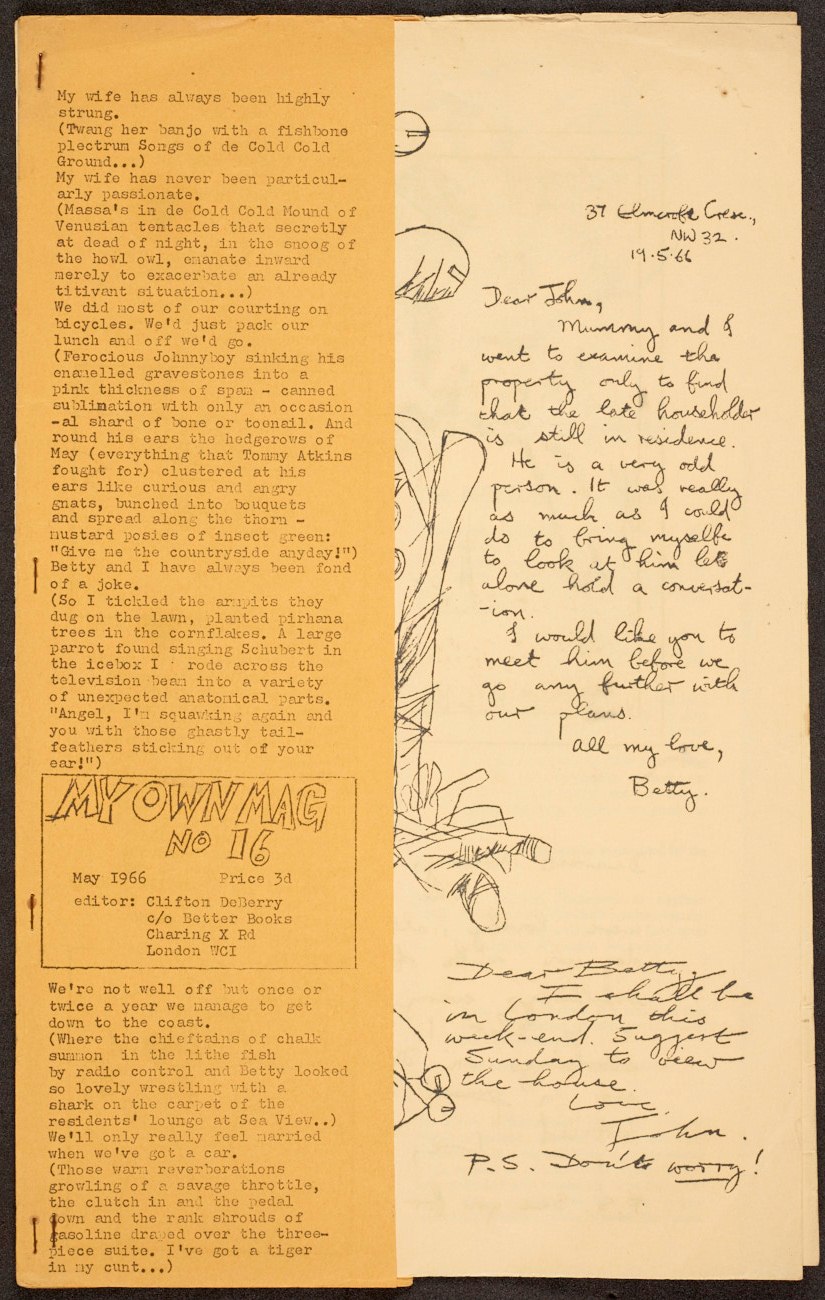 My wife has always been highly
strung.
(Twang her banjo with a fishbone
plectrum Songs of de Cold Cold
Ground...)
My wife has never been particul-
arly passionate.
(Massa's in de Cold Cold Mound of
Venusian tentacles that secretly
at dead of night, in the snoog of
the howl owl, emanate inward
merely to exacerbate an already
titivant situation...)
We did most of our courting on
bicycles. We'd just pack our
lunch and off we'd go.
(Ferocious Johnnyboy sinking his
enamelled gravestones into a
pink thickness of spam - canned
sublimation with only an occasion
-al shard of bone or toenail. And
round his ears the hedgerows of
May (everything that Tommy Atkins
fought for) clustered at his
ears like curious and angry
gnats, bunched into bouquets
and spread along the thorn -
mustard posies of insect green:
"Give me the countryside anyday!")
Betty and I have always been fond
of a joke.
(So I tickled the armpits they
dug on the lawn, planted pirhana
trees in the cornflakes. A large
parrot found singing Schubert in
the icebox I rode across the
television beam into a variety
of unexpected anatomical parts.
"Angel, I'm squawking again and
you with those ghastly tail-
feathers sticking out of your
ear!")
MY OWN MAG
NO 16
May I966 Price 3d
editor: Clifton DeBerry
c/o Better Books
Charing X Rd
London WCI
We're not well off but once or
twice a year we manage to get
down to the coast.
(Where the chieftains of chalk
summon in the lithe fish
by radio control and Betty looked
so lovely wrestling with a
shark on the carpet of the
residents' lounge at Sea View..)
We'll only really feel married
when we've got a car.
(Those warm reverberations
growling of a savage throttle,
the clutch in and the pedal
down and the rank shrouds of
gasoline draped over the three-
piece suite. I've got a tiger
in my cunt...)
37 Elmcroft Cresc.,
NW 32.
19.5.66
Dear John,
Mummy and I
went to examine the
property only to find
that the late householder
is still in residence.
He is a very odd
person. It was really
as much as I could
do to bring myselfe
to look at him let
alone hold a conversat-
-ion.
I would like you to
meet him before we
go any further with
our plans.
All my love,
Betty.
Dear Betty,
I shall be
in London this
week-end. Suggest
Sunday to view
the house.
Love,
John.
P.S. Don't worry!